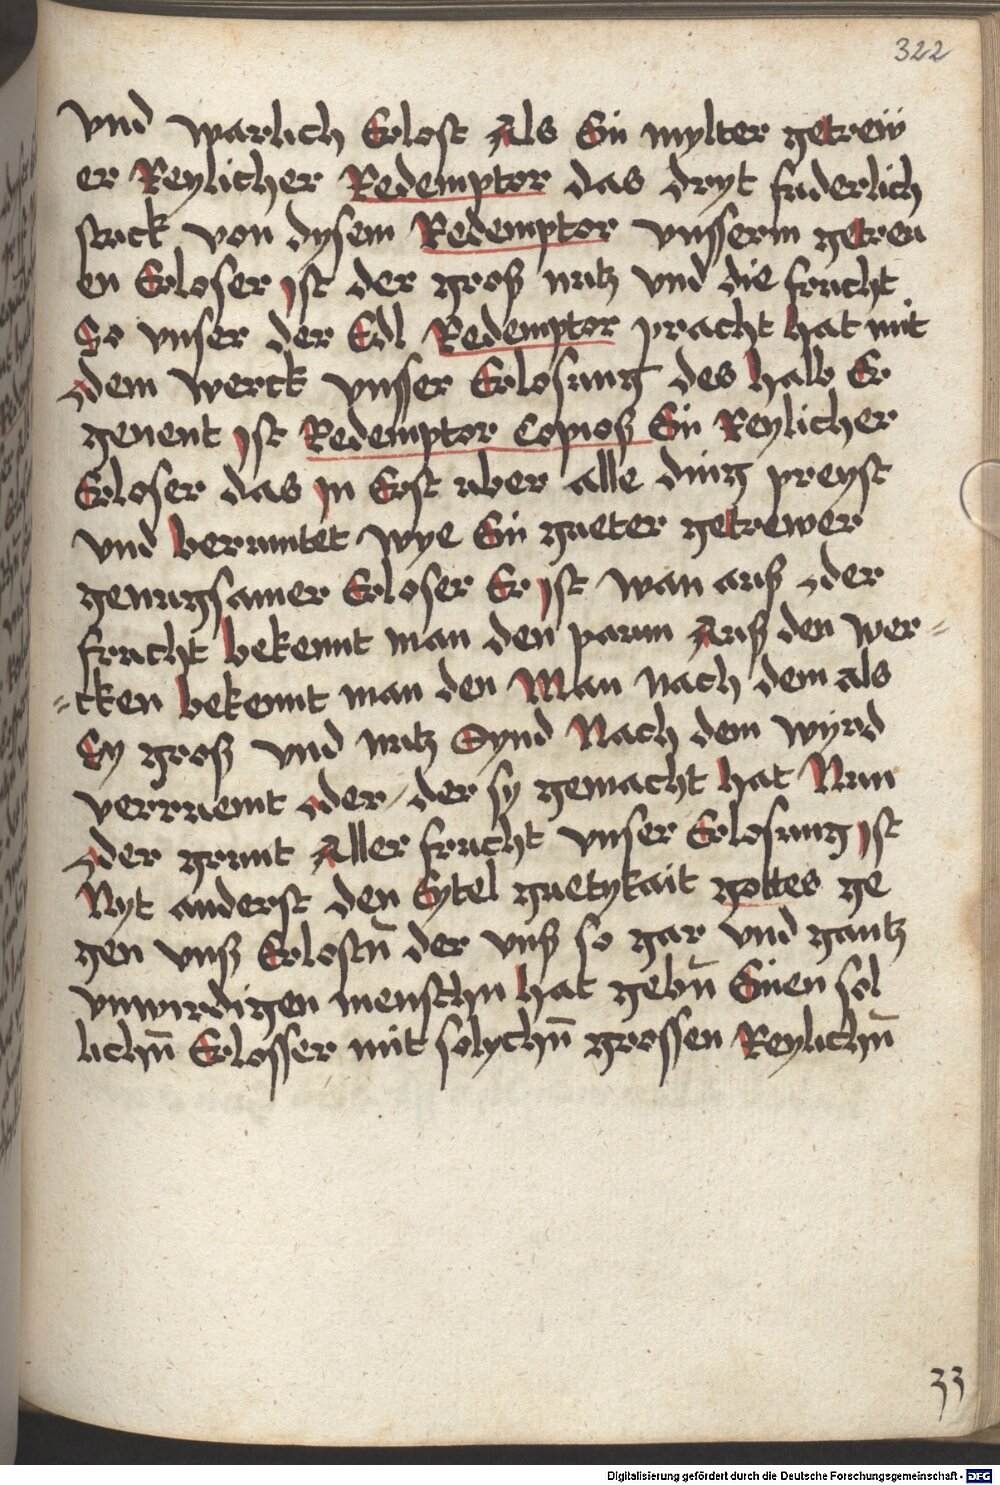 322
vnd warlich Erlost Als Ein mylter getreẅ
er Reylicher Redemptor das dryt suderlich
stuck von dysem Redemptor vnsserm getreu
en Erloser jst der groß nutz vnd die frucht
So vnser der Edl Redemptor pracht hat mit
dem werck vnsser Erlosung des halb Er
genent jst Redemptor Copioß Ein Reylicher
Erloser das jn Erst uber alle ding preyst
vnd berumtet wye Ein gueter getrewer
genugsamer Erloser Er jst wan auß der
frucht bekennt man den paum Auß den wer=
=cken bekennt man den Man nach dem als
Sy groß vnd nutz Synd Nach dem wyrd
verruemt der / der sy gemacht hat Nun
der grunt Aller frucht vnser Erlosung jst
Nyt anderst den Eytel guetykait gottes ge
gen vnß Erlostn̄ der vnß so gar vnd gantz
vnwirdigen menschn hat gebn̄ Einen sol
lichn̄ Erlosser mit solychn̄ grossen Reylichn̄
33
Digitalisierung gefördert durch die Deutsche Forschungsgemeinschaft - DFG